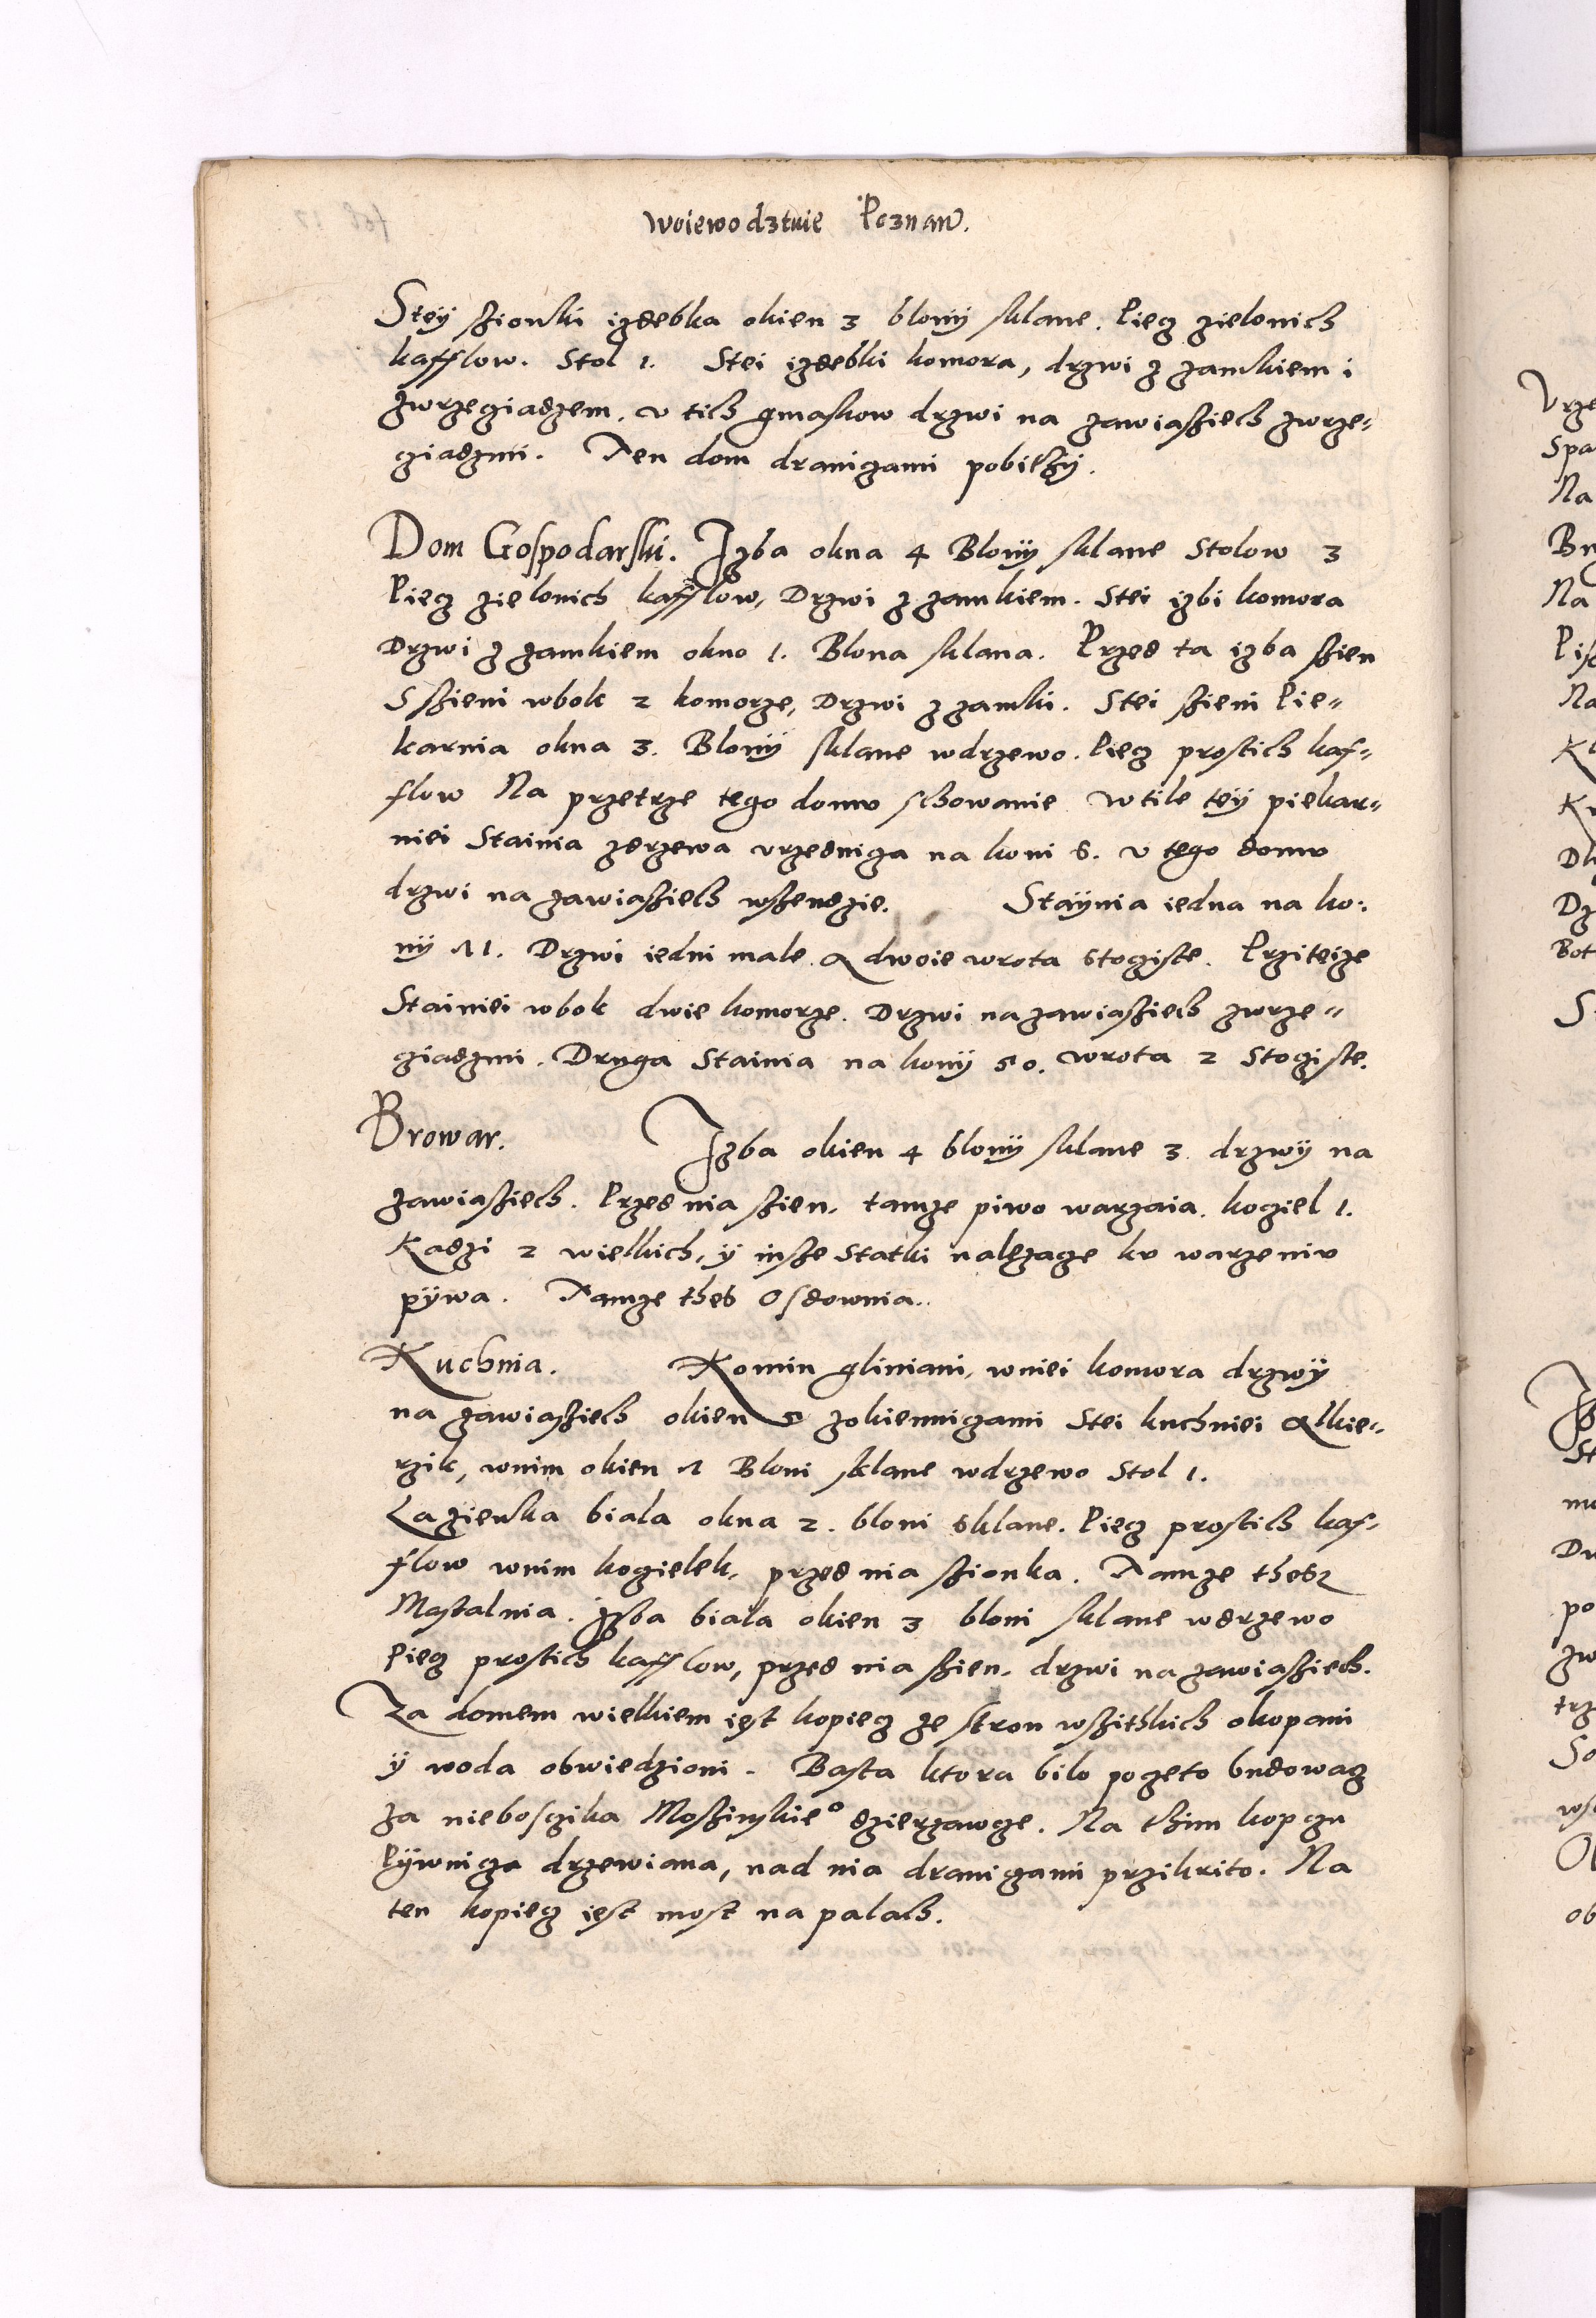 Woiewodztwie Poznan.
Stey szionki izdebka okien 3 blony sklane. Piecz zielonich
kafflow. Stol 1. Stei izdebki komora, drzwi z zamkiem i
zwrzecziadzem. v tich gmaskow drzwi na zawiasziech zwrze-
cziadzmi. Ten dom dranigami pobithy.
Dom Gospodarski. Izba okna 4 Blony sklane Stolow 3
Piecz zielonich kafflow, Drzwi z zamkiem. Stei izbi komora
Drzwi z zamkiem okno 1. Blona sklana. Przed ta izba szien
S szieni wbok 2 komorze, Drzwi z zamki. Stei szieni Pie-
karnia okna 3. Blony sklane wdrzewo. Piecz prostich kaf-
flow Na przetrze tego domv schowanie wtile tey piekar-
niei Stainia zdrzewa vrzedniga na koni 6. v tego domv
drzwi na zawiasziech wszendzie. Staynia iedna na ko-
ny 11. Drzwi iedni male. A dwoie wrota stogiste. Prziteize
Stainiei wbok dwie komorze. Drzwi na zawiasziech zwrze-
cziadzmi. Druga Stainia na kony 50. wrota 2 Stogiste.
Browar. Izba okien 4 blony sklane 3 drzwy na
zawiasziech. Przed nia szien, tamze piwo warzaia. kogiel 1.
Kadzi 2 wielkich, y insze Statki nalezage kv warzeniv
pywa. Tamze thes Osdownia.
Kuchnia. Komin gliniani, wniei komora drzwy
na zawiasziech okien 5 zokiennigami Stei kuchniei Alkie-
rzik, wnim okien 1 Bloni sklane wdrzewo Stol 1.
Lazienka biala okna 2. bloni sklane. Piecz prostich kaf-
flow wnim kogielek, przed nia szionka. Tamze thesz
Mastalnia. Izba biala okien 3 bloni sklane wdrzewo
Piecz prostich kafflow, przed nia szien, drzwi na zawiasziech.
Za domem wielkiem iest kopiecz ze stron wszithkich okopani
y woda obwiedzioni. Basta ktora bilo poczeto budowacz
za nieboscika Moszinskieo dzierzawcze. Na thim kopczu
Pywnicza drzewiana, nad nia dranigami przikrito. Na
ten kopiecz iest most na palach.